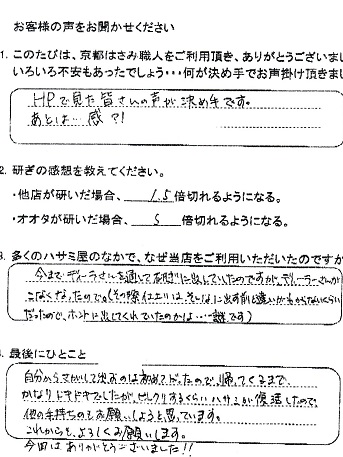 お客様の声をお聞かせください
1. このたびは、京都はさみ職人をご利用頂き、ありがとうございまし
いろいろ不安もあったでしょう・・・何が決め手でお声掛け頂きまし
HPで見た皆さんの声が決め手です。
あとは… 感?!
2. 研ぎの感想を教えてください。
・他店が研いだ場合、 1.5 倍切れるようになる。
・オオタが研いだ場合、 5 倍切れるようになる。
3. 多くのハサミ屋のなかで、なぜ当店をご利用いただいたのですか
今までディーラーさんを通してお研ぎに出していたのですが、ディーラーさんが
こなくなったので。(その際仕上りは、そんなに出す前と違いがわからないくらい
だったので、ホントに出してくれていたのかは…謎です)
. 最後にひとこと
自分からさがして出すのは初めてだったので、帰ってくるまで、
かなりドキドキでしたが、ビックリするくらいハサミが復活したので、
他の手持ちのもお願いしようと思っています。
これからも、よろしくお願いします。
今回はありがとうございました!!